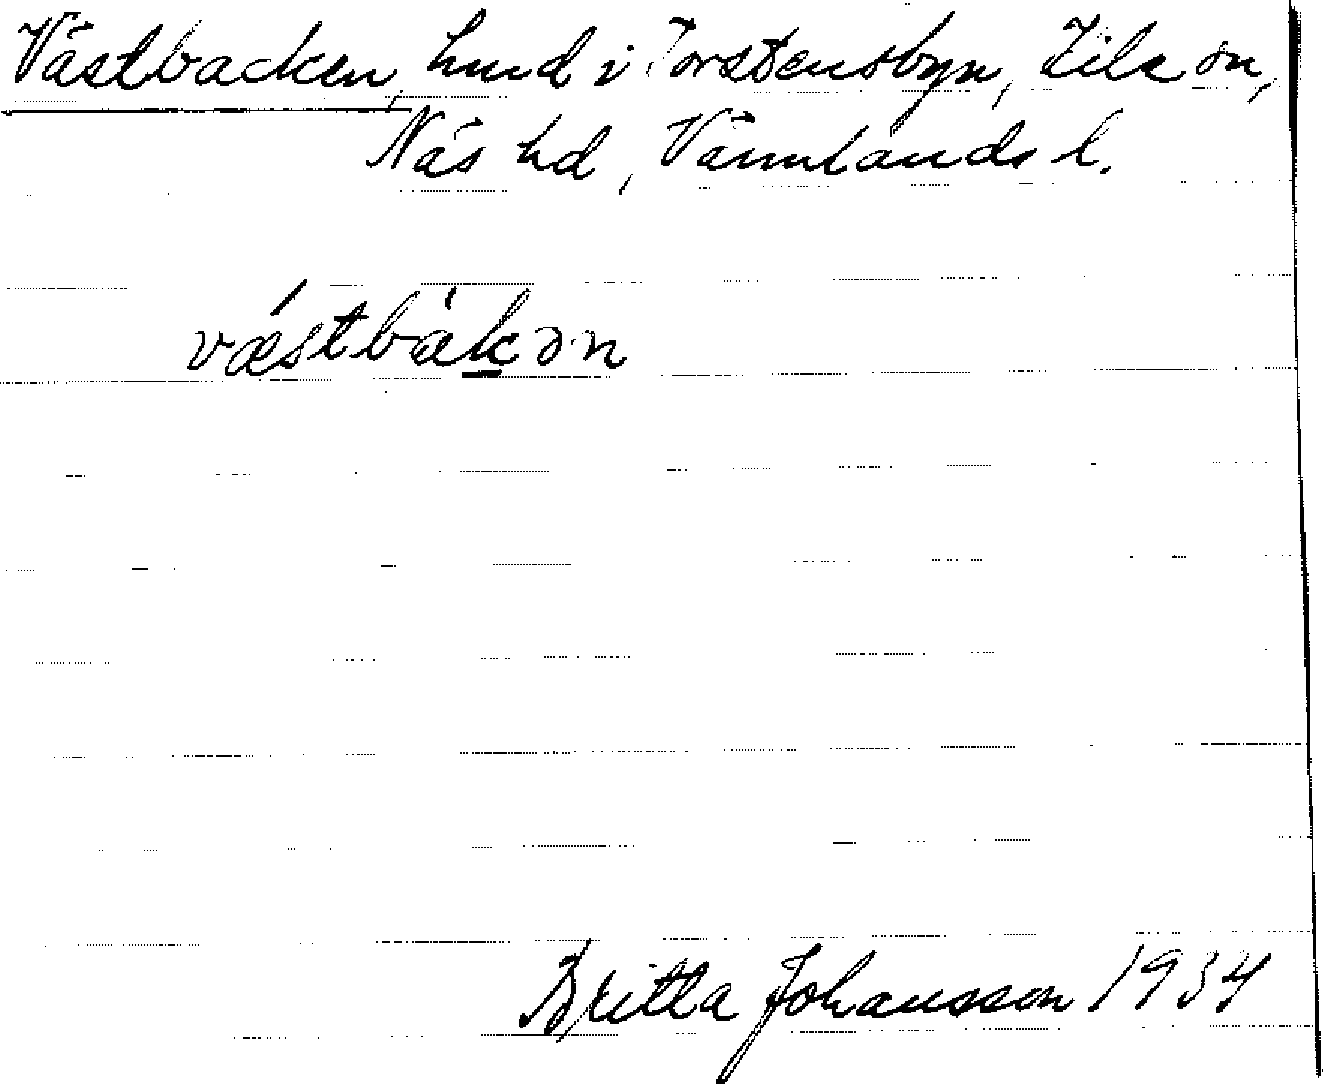 Västbacken, hmd i Torstensbyn, Eds sn,
Näs hd, Värmlands l.
væ´stbàk̲ən
Britta Johansson 1934